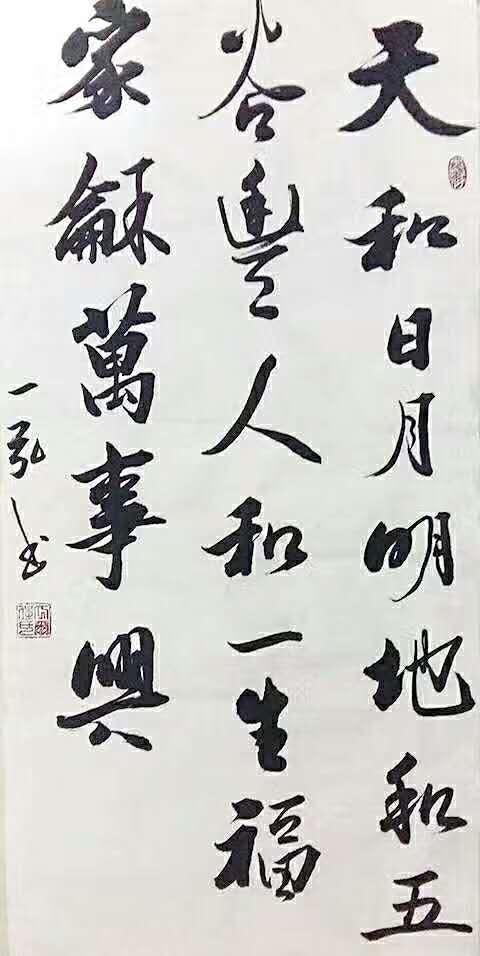 天和日月明地和五
谷豐人和一生福
家龢萬事興
一弘书